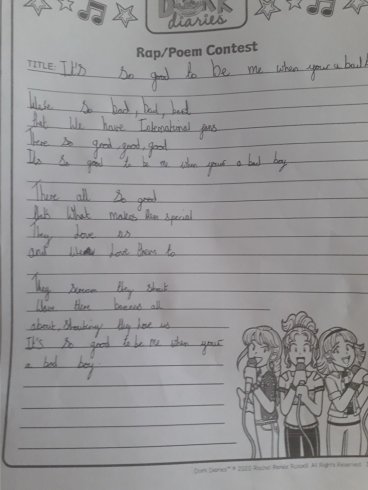 DORK
diaries
Rap/Poem Contest
TITLE: It's so good to be me when your a bad
We're so bad, bad, bad
that we have International fans
There so good, good, good
It's so good to be me when your a bad boy
There all so good
thats what makes them special
They love us
and we love them to
They scream they shout
there all
about, shouting they love us
It's so good to be me when your
a bad boy.
Dork Diaries™ © 2020 Rachel Renée Russell. All Rights Reserved.